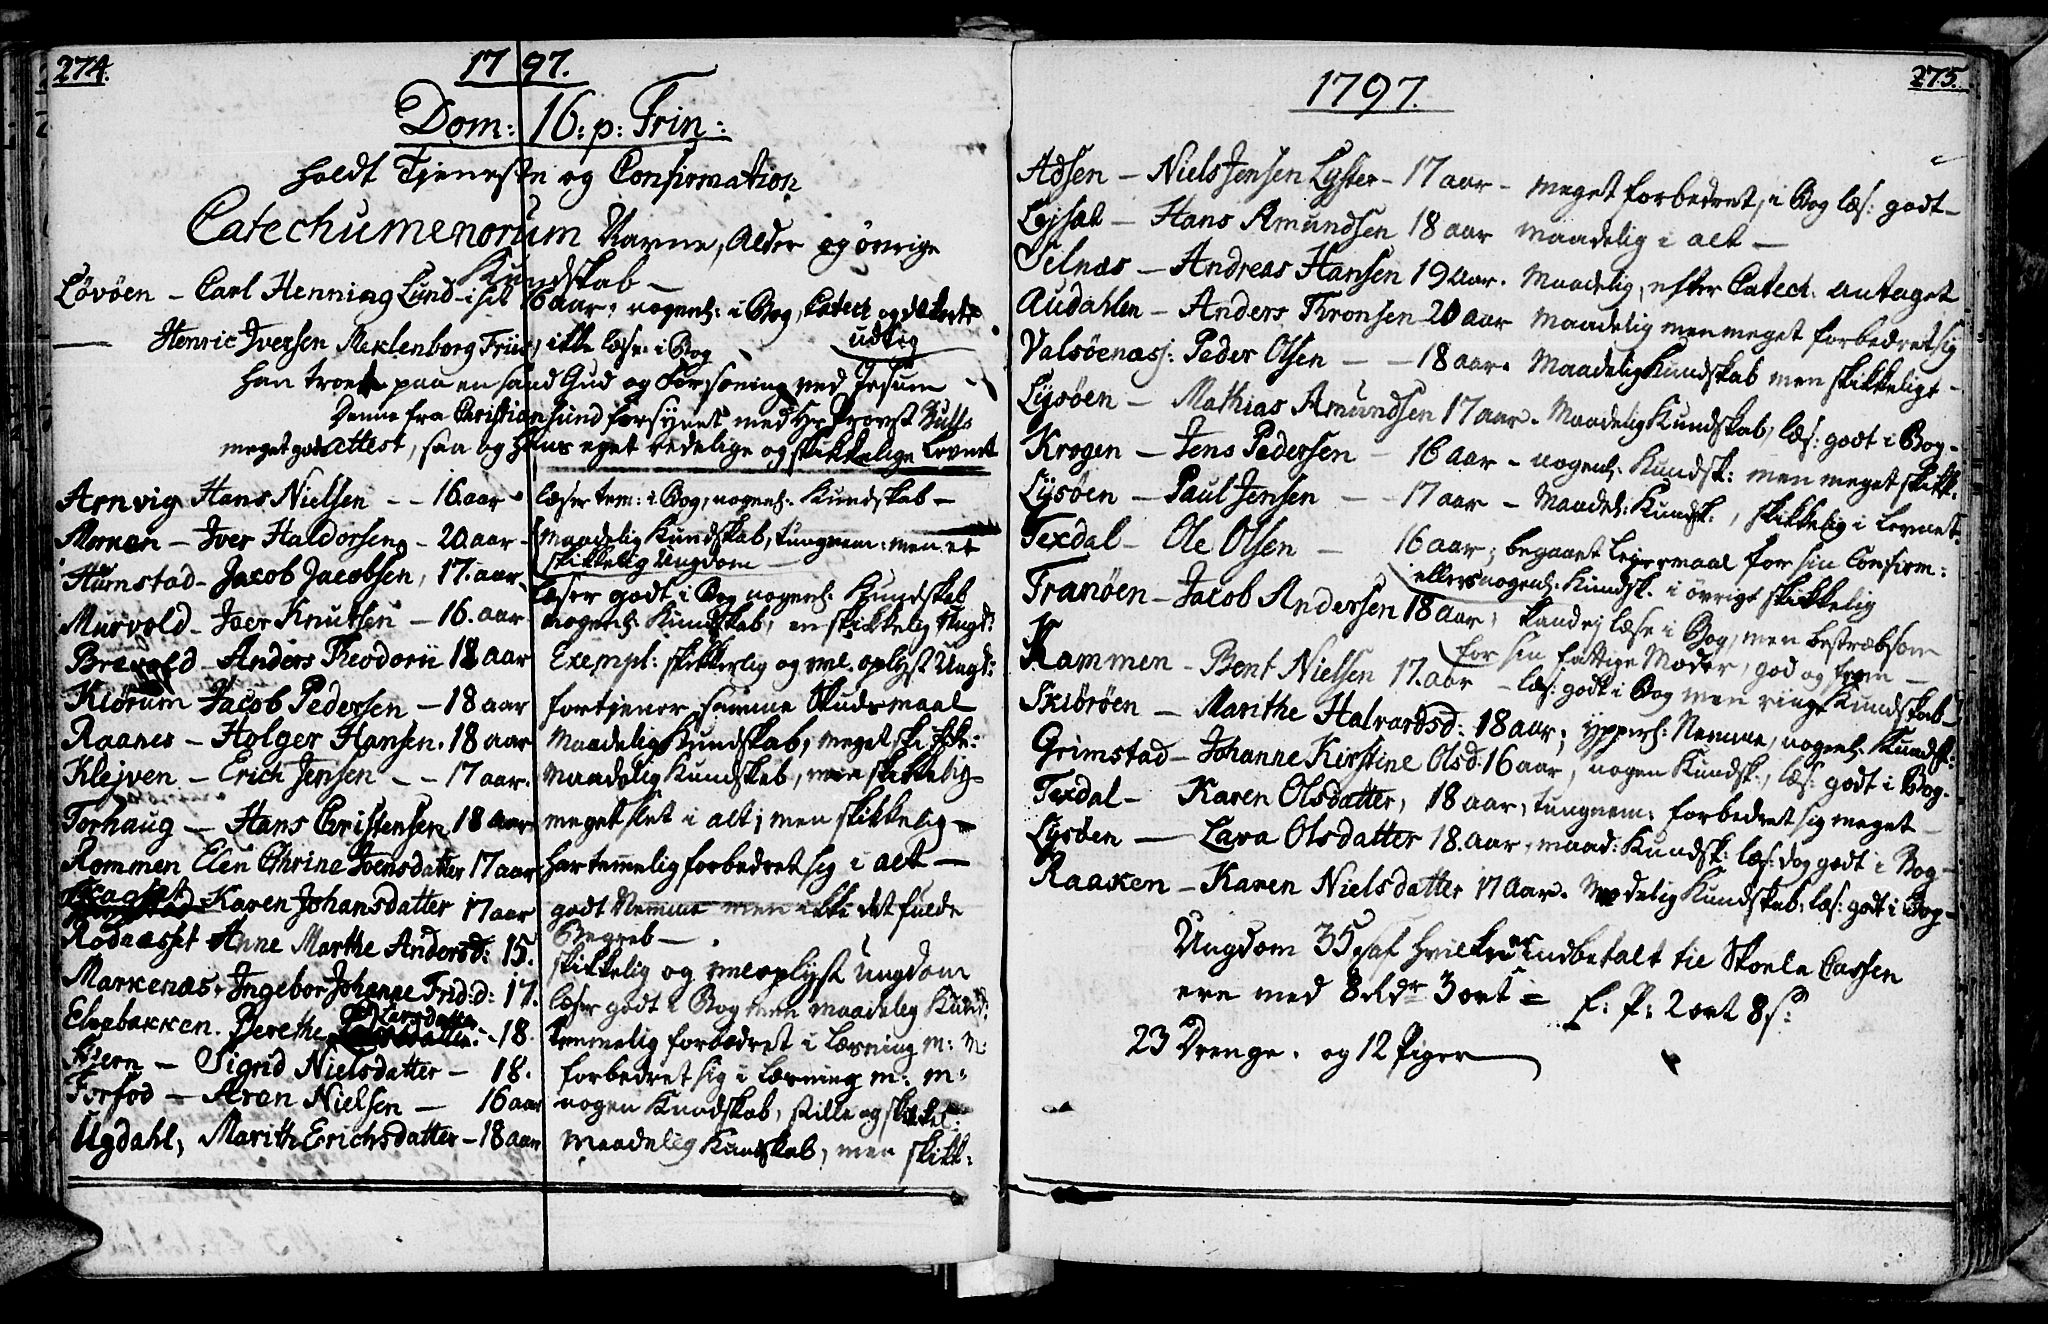 274.
1797.
Dom: 16: p: Trin:
holdt Tjeneste og Confirmation
Catechumenorum Navne, Alder og øvrige
Kundskab —
Løvøen — Carl Henning Lund - 16 aar, nogenl: i Bog, Catech og
udtog
— Henric Iversen Meklenborg Friis, ikke læse i Bog
han troer paa en sand Gud og Forsoning ved Jesum
Denne fra Christiansund forsynet med Hr Provst
meget god attest, saa og hans eget redelige og skikkelige Levnet
Arnvig Hans Nielsen - - 16. aar - læser tem: i Bog, nogenl: Kundskab —
Iver Haldorsen - 20 aar - Maadelig Kundskab, tungnem: men et
skikkelig Ungdom —
Hurnstad - Jacob Jacobsen, 17. aar læser godt i Bog nogenl: Kundskab
Murvold - Iver Knutsen — 16. aar nogenl: Kundskab, en skikkelig Ungd:
Anders Theodorii 18 aar Exempl: skikkelig og vel oplyst Ungd:
Kiørum Jacob Pedersen — 18 aar fortjener samme Skudsmaal
Raanes — Holger Hansen. 18 aar Maadelig Kundskab, meget skikke:
Klejven — Erich Jensen - - 17 aar. Maadelig Kundskab, men skikkelig -
Torhaug — Hans Christensen 18 aar meget slet i alt; men skikkelig —
Rommen Elen Chrine Iversdatter 17 aar har temmelig forbedret sig i alt —
Karen Johansdatter 17 aar godt Nemme men ikke det fulde
Begreb —
Rodaasset Anne Marthe Andersd: 15. skikkelig og vel oplyst Ungdom
Markenæs, Ingebor Johanne Frid:d: 17. læser godt i Bog men maadelig Kund:
Elvebakken. Berethe Larsdatter - 18. temmelig forbedret i Læsning m: m:
Sigrid Nielsdatter — 18. forbedret sig i Læsning m: m:
Forfod — Aran Nielsen — 16 aar nogen Kundskab, stille og skikkel:
Ugdahl, Marith Erichsdatter — 18 aar Maadelig Kundskab, men skikk:
275.
1797.
Adsen — Niels Jensen Lyster - 17 aar - meget forbedret, i Bog læs: godt -
Lejsæt — Hans Amundsen 18 aar maadelig i alt —
Selnæs — Andreas Hansen 19 aar. Maadelig, efter Catech. antaget
Audahlen — Anders Tronsen 20 aar Maadelig men meget forbedret sig
Valsøenæss: Peder Olsen — — 18 aar. Maadelig Kundskab men skikkelige -
Lysøen — Mathias Amundsen 17 aar. Maadelig Kundskab, læs: godt i Bog -
Krogen — Jens Pedersen — 16 aar - nogenl: Kundsk: men meget skikk.
Lysøen — Paul Jensen — 17 aar — Maadel: Kundsk:, skikkelig i Levnet:
Texdal — Ole Olsen — 16 aar, begaaet Lejermaal for sin Confirm:
ellers nogenl: Kundsk. i øvrigt skikkelig
Tranøen — Jacob Andersen 18 aar, kand ej læse i Bog, men bestræbsom
for sin fattige Moder, god og from —
Kammen — Bent Nielsen 17. aar — læs: godt i Bog men ringe Kundskab -
Skibrøen — Marithe Halvardsd: 18 aar; ypperl: Nemme, nogenl: Kundsk:
Grimstad — Johanne Kirstine Olsd: 16 aar, nogen Kundsk:, læs: godt i Bog.
Texdal — Karen Olsdatter, 18 aar, tungnem: forbedret sig meget —
Lysøen — Lava Olsdatter 18. aar, maad: Kundsk: læs: dog godt i Bog —
Raaken — Karen Nielsdatter 17 Aar. Madelig Kundskab, læs: godt i Bog -
Ungdom 35, af hvilken er indbetalt til Skole Cassen
ere med 8 Rdr 3 ort = f: P: 2 ort 8 s:
23 Drenge. og 12 Piger